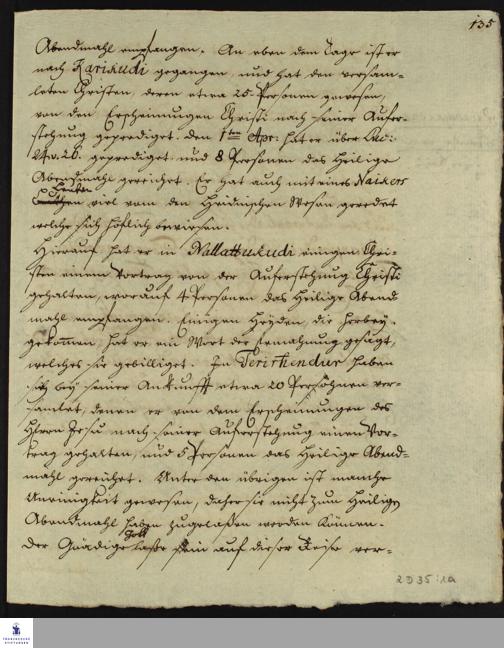 135
Abendmahl empfangen. An eben dem Tage ist er
nach Karikudi gegangen, und hat den versam-
leten Christen, deren etwa 25 Personen gewesen,
von den Erscheinungen Christi nach seiner Aufer-
stehung geprediget. den 1ten Apr: hat er über
24. v. 26. geprediget und 8 Personen das Heilige
Abendmahl gereichet. Er hat auch mit eines Naikers
Leuten viel von dem Heidnischen Wesen geredet
welche sich höflich bewiesen.
Hierauf hat er in Nallattukudi einigen Chri-
sten einen Vortrag von der Auferstehung Christi
gehalten, worauf 4 Personen das Heilige Abend
mahl empfangen. Einigen Heyden die herbey
gekommen, hat er ein Wort der Ermahnung gesagt,
welches sie gebilliget. In Terirhendur haben
sich bey seiner Ankunfft etwa 20 Personen ver-
samlet, denen er von den Erscheinungen des
Herrn Jesu nach seiner Auferstehung einen Vor-
trag gehalten, und 5 Personen das Heilige Abend-
mahl gereichet. Unter den übrigen ist manche
Uneinigkeit gewesen, daher sie nicht zum Heiligen
Abendmahl haben zugelaßen werden können.
Der Gnädige Gott laße sein auf dieser Reise ver-
2 D 35 : 1a
FRANCKESCHE
STIFTUNGEN